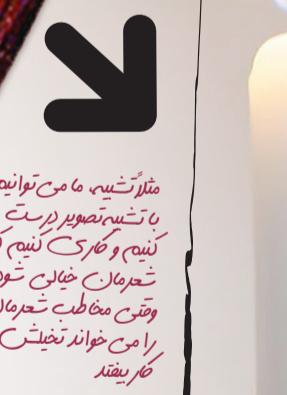 مثلاً تشبیه. ما می توانیم
با تشبیه تصویر درست
کنیم و کاری کنیم ک
شعرمان خیالی شود
وقتی مخاطب شعرمان
را می خواند تخیلش
کار بیفتد